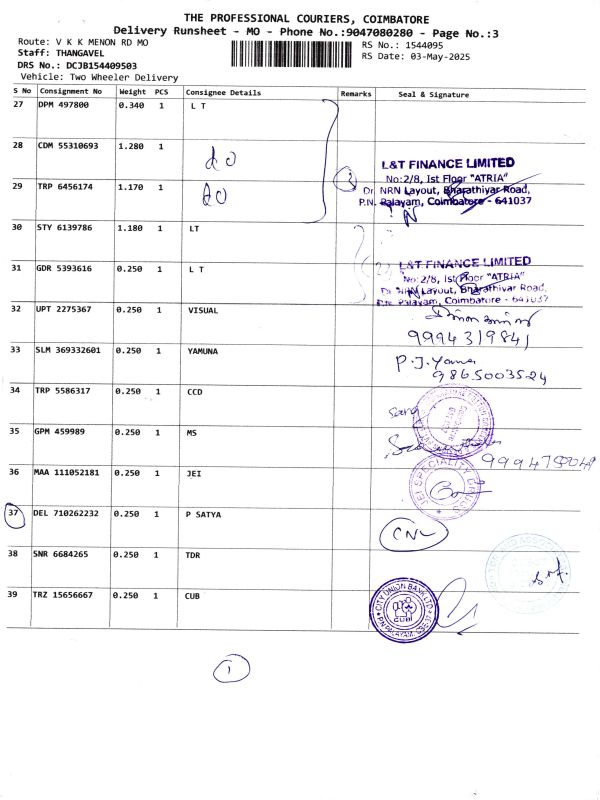 THE PROFESSIONAL COURIERS, COIMBATORE
Delivery Runsheet - MO - Phone No.:9047080280 - Page No.:3
Route: V K K MENON RD MO
RS No.: 1544095
Staff: THANGAVEL
RS Date: 03-May-2025
DRS No.: DCJB154409503
Vehicle: Two Wheeler Delivery
S No Consignment No Weight PCS Consignee Details Remarks Seal & Signature
27 DPM 497800 0.340 1 L T
28 CDM 55310693 1.280 1
do
3
L&T FINANCE LIMITED
No:2/8, Ist Floor "ATRIA"
29 TRP 6456174 1.170 1
do
Dr. NRN Layout, Bharathiyar Road,
P.N. Palayam, Coimbatore - 641037
30 STY 6139786 1.180 1 LT
31 GDR 5393616 0.250 1 L T
L&T FINANCE LIMITED
No:2/8, Ist Floor "ATRIA"
Dr. NRN Layout, Bharathiyar Road,
P.N. Palayam, Coimbatore - 641037
32 UPT 2275367 0.250 1 VISUAL
9994319841
33 SLM 369332601 0.250 1 YAMUNA
P.J.Yamu
9865003524
34 TRP 5586317 0.250 1 CCD
35 GPM 459989 0.250 1 MS
36 MAA 111052181 0.250 1 JEI
JEI SPECIALITY
37 DEL 710262232 0.250 1 P SATYA
CNL
38 SNR 6684265 0.250 1 TDR
39 TRZ 15656667 0.250 1 CUB
CITY UNION BANK LTD
CUB
1